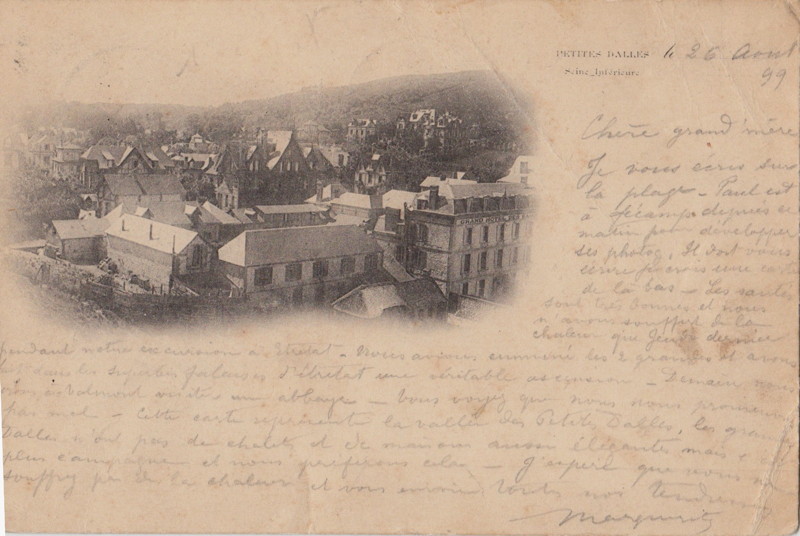 PETITES DALLES le 26 Août
Seine_Inférieure 99
Chère grand'mère
Je vous écris sur
la plage - Paul est
à Fécamp depuis ce
matin pour développer
ses photog. Il doit vous
écrire je crois une carte
de là bas - Les santés
sont très bonnes et nous
n'avons souffert de la
chaleur que Jeudi dernier
pendant notre excursion à Etretat - Nous avions emmené les 2 grandes et avons
fait dans les superbes falaises d'Etretat une véritable ascension - Demain nous
à Valmont visiter une abbaye - Vous voyez que nous nous promenons
pas mal - Cette carte représente la vallée des Petites Dalles, les grandes
Dalles n'ont pas de chalets et de maisons aussi élégantes mais c'est
plus campagne et nous préférons cela - J'espère que vous ne
souffrez pas de la chaleur et vous envoie toutes nos tendresses
Marguerite
GRAND HOTEL